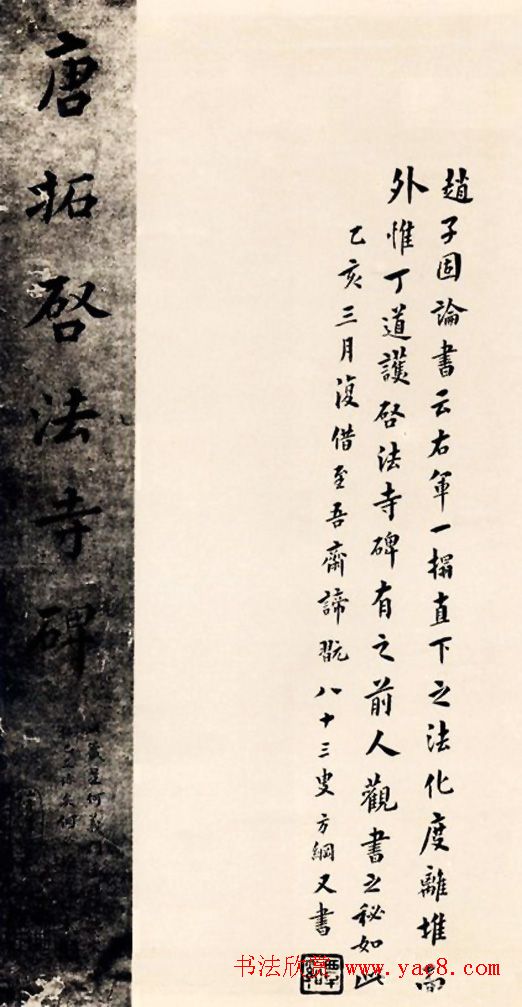 趙子固論書云右軍一搨直下之法化度離堆而
外惟丁道護啓法寺碑有之前人觀書之秘如此
乙亥三月復借至吾齋諦翫八十三叟方綱又書
唐拓啓法寺碑
书法欣赏 www.yac8.com